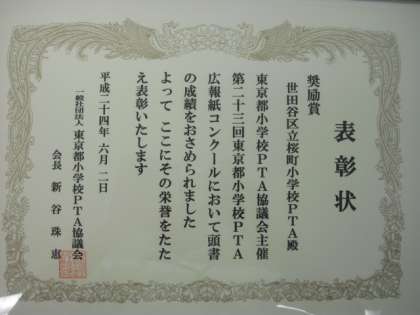 表彰状
奨励賞
世田谷区立桜町小学校PTA殿
東京都小学校PTA協議会主催
第二十三回東京都小学校PTA
広報紙コンクールにおいて頭書
の成績をおさめられました
よって ここにその栄誉をたた
え表彰いたします
平成二十四年 六月 二日
一般社団法人 東京都小学校PTA協議会
会長 新谷珠恵